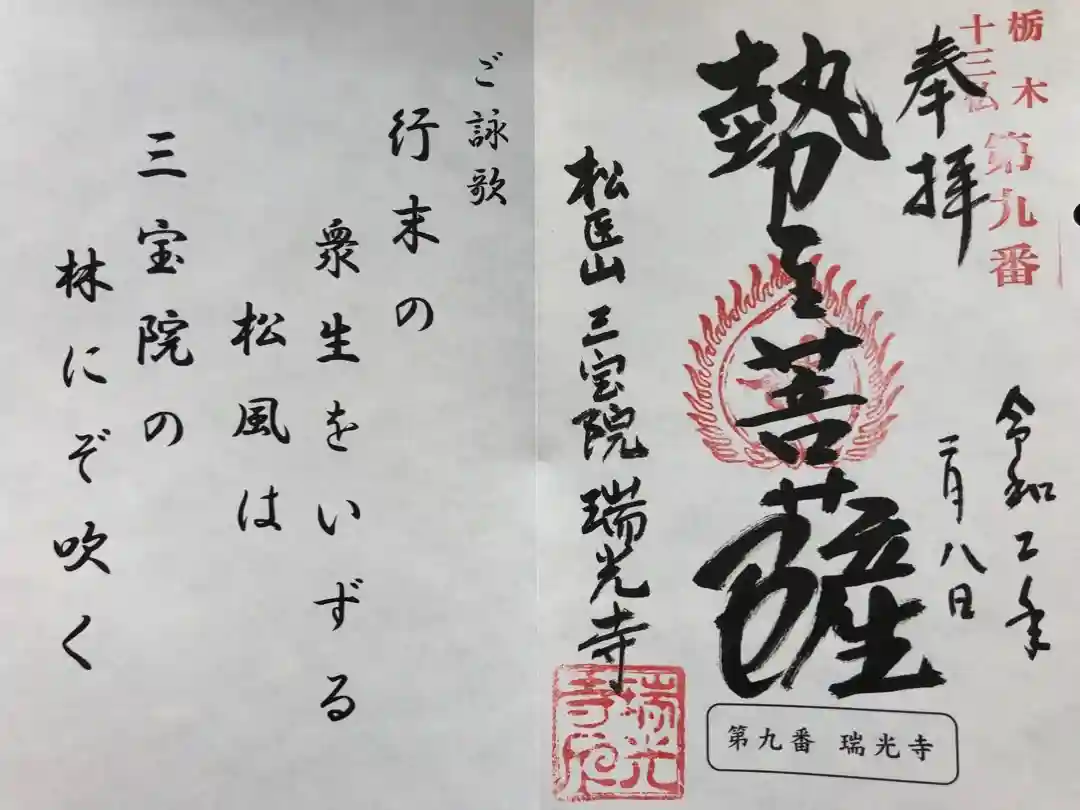 栃木
十三仏
第九番
奉拝
令和二年
二月八日
勢至菩薩
松医山 三宝院 瑞光寺
第九番 瑞光寺
ご詠歌
行末の
衆生をいずる
松風は
三宝院の
林にぞ吹く